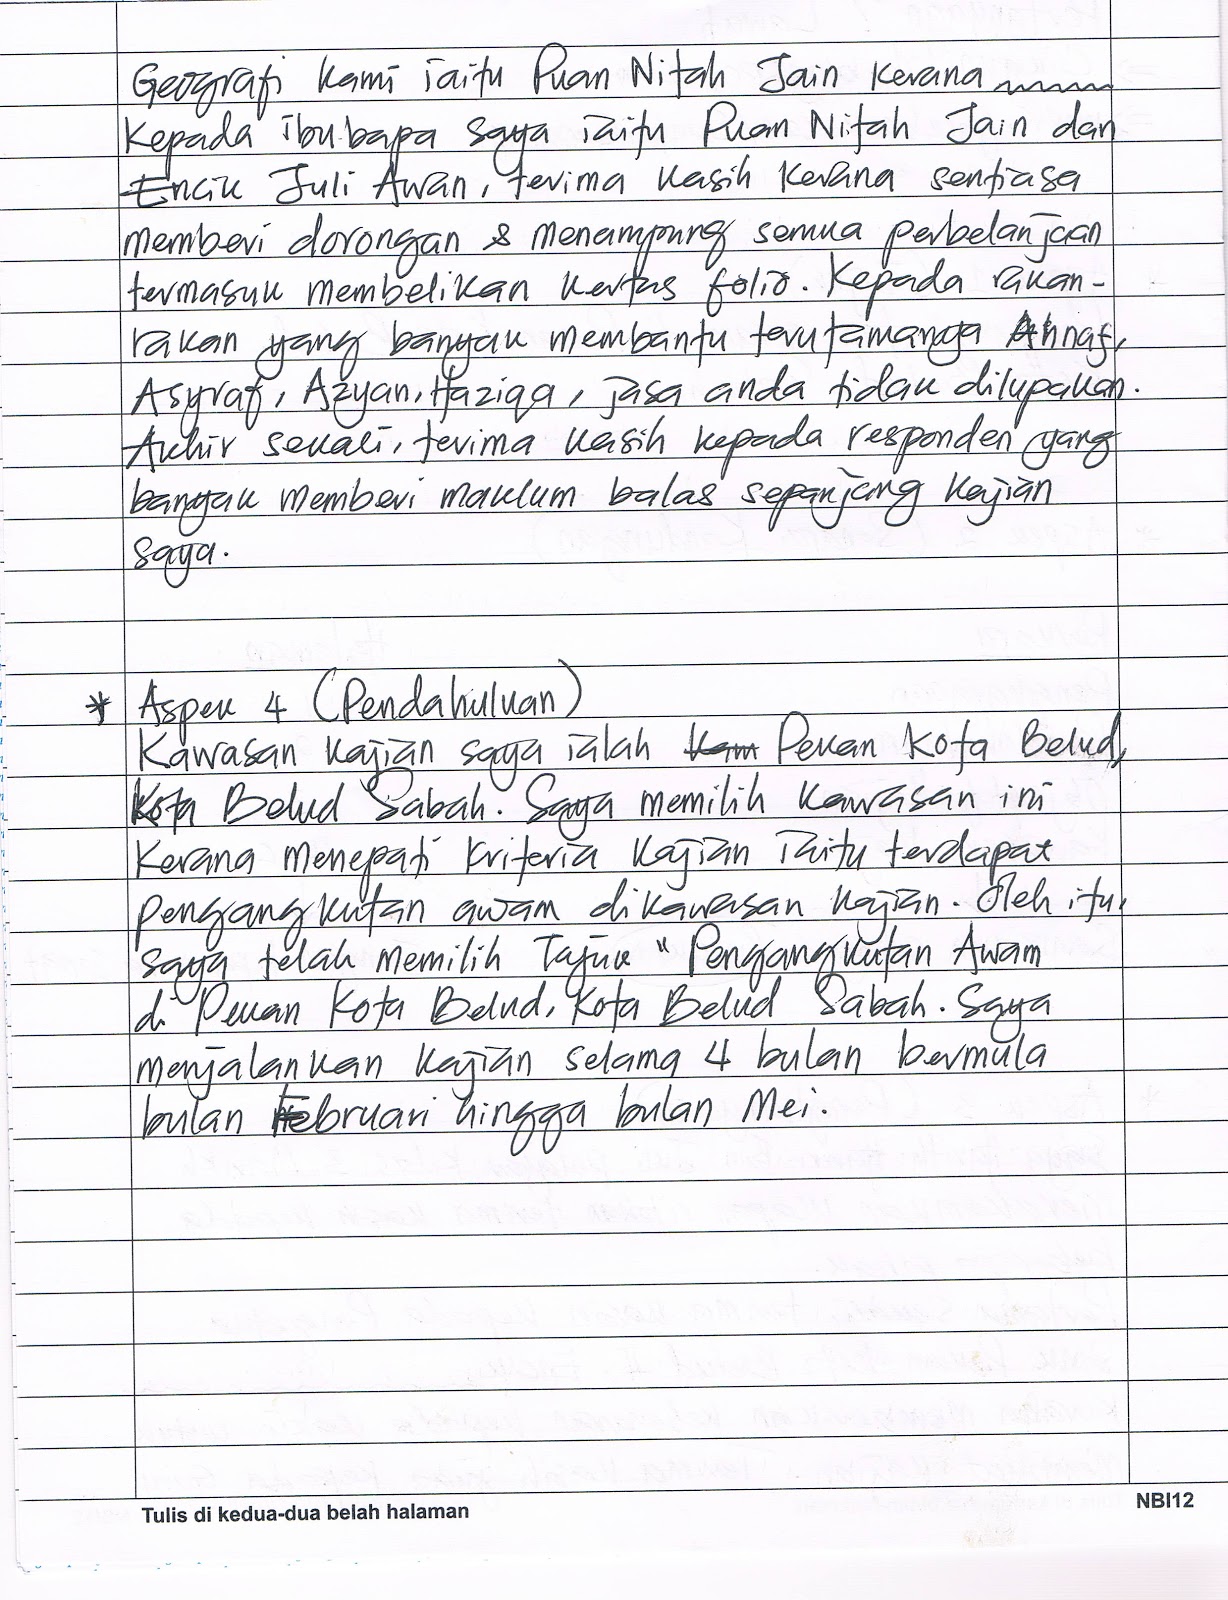 Geografi kami iaitu Puan Nitah Jain kerana
kepada ibubapa saya iaitu Puan Nitah Jain dan
Encik Juli Awan, terima kasih kerana sentiasa
memberi dorongan & menampung semua perbelanjaan
termasuk membelikan kertas folio. Kepada rakan-
rakan yang banyak membantu terutamanya Ahnaf,
Asyraf, Azyan, Haziqa, jasa anda tidak dilupakan.
Akhir sekali, terima kasih kepada responden yang
banyak memberi maklum balas sepanjang kajian
saya.
* Aspek 4 (Pendahuluan)
Kawasan kajian saya ialah Kam Pekan Kota Belud,
Kota Belud Sabah. Saya memilih kawasan ini
kerana menepati kriteria kajian iaitu terdapat
pengangkutan awam dikawasan kajian. Oleh itu,
saya telah memilih Tajuk "Pengangkutan Awam
di Pekan Kota Belud, Kota Belud Sabah. Saya
menjalankan kajian selama 4 bulan bermula
bulan Februari hingga bulan Mei.
Tulis di kedua-dua belah halaman
NBI12